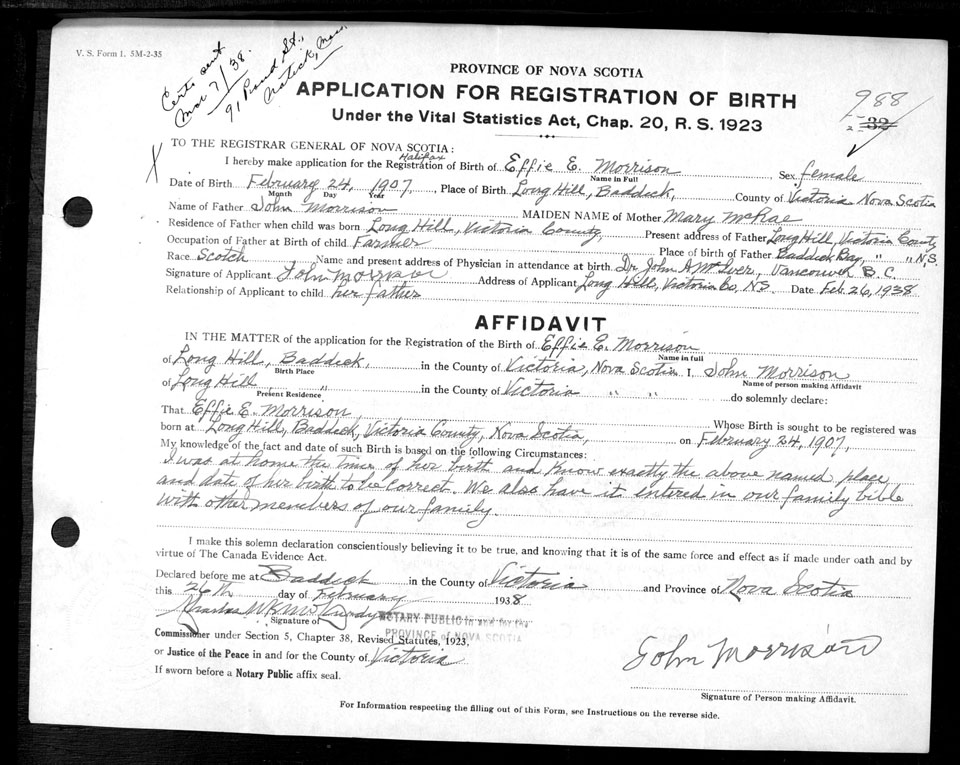 V. S. Form 1. 5M-2-35
Certs sent
Mar 7/38.
91 Pond St.,
Natick, Mass.
PROVINCE OF NOVA SCOTIA
APPLICATION FOR REGISTRATION OF BIRTH
Under the Vital Statistics Act, Chap. 20, R. S. 1923
988
2-32
TO THE REGISTRAR GENERAL OF NOVA SCOTIA:
Halifax
I hereby make application for the Registration of Birth of Effie E. Morrison Sex female
Name in Full
Date of Birth February 24, 1907, Place of Birth Long Hill, Baddeck, County of Victoria Nova Scotia
Month Day Year
Name of Father John Morrison MAIDEN NAME of Mother Mary McRae
Residence of Father when child was born Long Hill, Victoria County, Present address of Father Long Hill, Victoria County
Occupation of Father at Birth of child Farmer Place of birth of Father Baddeck Bay, " " N.S.
Race Scotch Name and present address of Physician in attendance at birth Dr. John A. McIver, Vancouver B.C.
Signature of Applicant John Morrison Address of Applicant Long Hill, Victoria Co, N.S. Date Feb 26, 1938
Relationship of Applicant to child her father
AFFIDAVIT
IN THE MATTER of the application for the Registration of the Birth of Effie E. Morrison
Name in full
of Long Hill, Baddeck, in the County of Victoria, Nova Scotia I, John Morrison
Birth Place Name of person making Affidavit
of Long Hill, " in the County of Victoria " " do solemnly declare:
Present Residence
That Effie E. Morrison, Whose Birth is sought to be registered was
born at Long Hill, Baddeck, Victoria County, Nova Scotia, on February 24, 1907,
My knowledge of the fact and date of such Birth is based on the following Circumstances:
I was at home the time of her birth and know exactly the above named place
and date of her birth to be correct. We also have it entered in our family bible
with other members of our family.
I make this solemn declaration conscientiously believing it to be true, and knowing that it is of the same force and effect as if made under oath and by
virtue of The Canada Evidence Act.
Declared before me at Baddeck in the County of Victoria and Province of Nova Scotia
this 26th day of February 1938
Charles
Signature of NOTARY PUBLIC in and for the
PROVINCE of NOVA SCOTIA
Commissioner under Section 5, Chapter 38, Revised Statutes, 1923,
or Justice of the Peace in and for the County of Victoria
If sworn before a Notary Public affix seal.
John Morrison
Signature of Person making Affidavit.
For Information respecting the filling out of this Form, see Instructions on the reverse side.